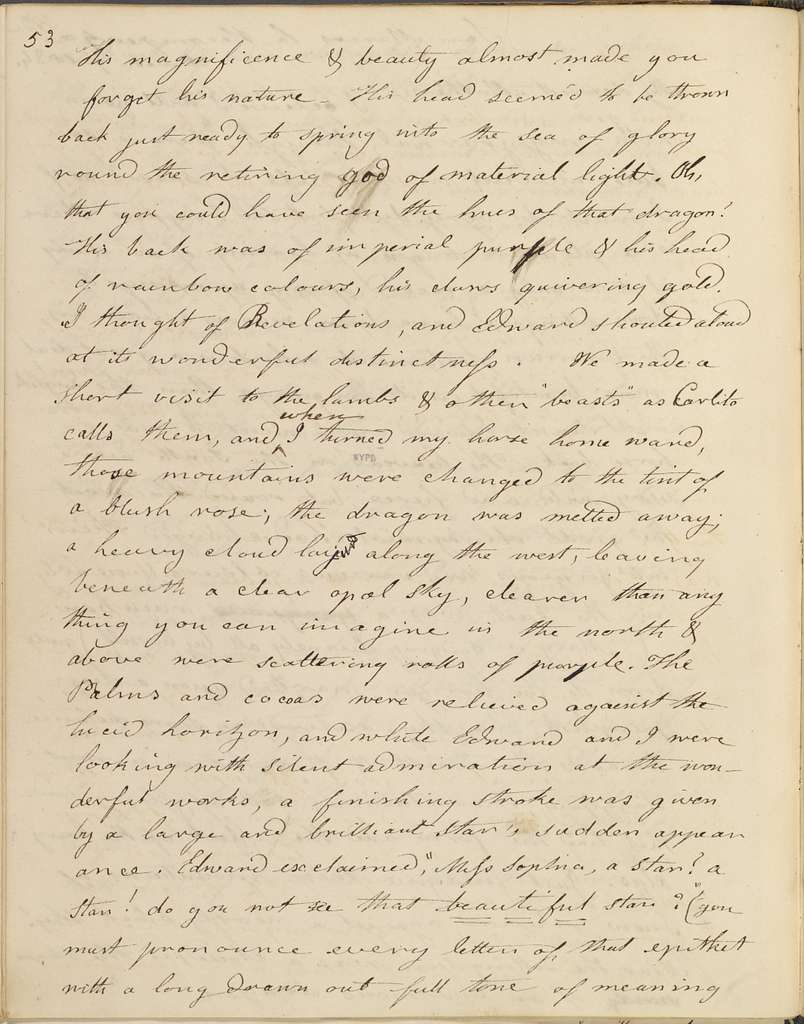 53
His magnificence & beauty almost made you
forget his nature. His head seemed to be thrown
back just ready to spring into the sea of glory
round the retiring god of material light. Oh,
that you could have seen the hues of that dragon!
His back was of imperial purple & his head
of rainbow colours, his claws quivering gold.
I thought of Revelations, and Edward shouted aloud
at its wonderful distinctness. We made a
short visit to the lambs & other "beasts" as Carlito
when
calls them, and I turned my horse home ward,
NYPL
those mountains were changed to the tint of
a blush rose; the dragon was melted away;
a heavy cloud along the west, leaving
beneath a clear opal sky, clearer than any
thing you can imagine in the north &
above were scattering rolls of purple. The
Palms and cocoas were relieved against the
lucid horizon, and while Edward and I were
looking with silent admiration at the won-
derful works, a finishing stroke was given
by a large and brilliant star's sudden appear
ance. Edward exclaimed, "Miss Sophia, a star! a
star! do you not see that beautiful star?" (you
must pronounce every letter of that epithet
with a long drawn out full tone of meaning